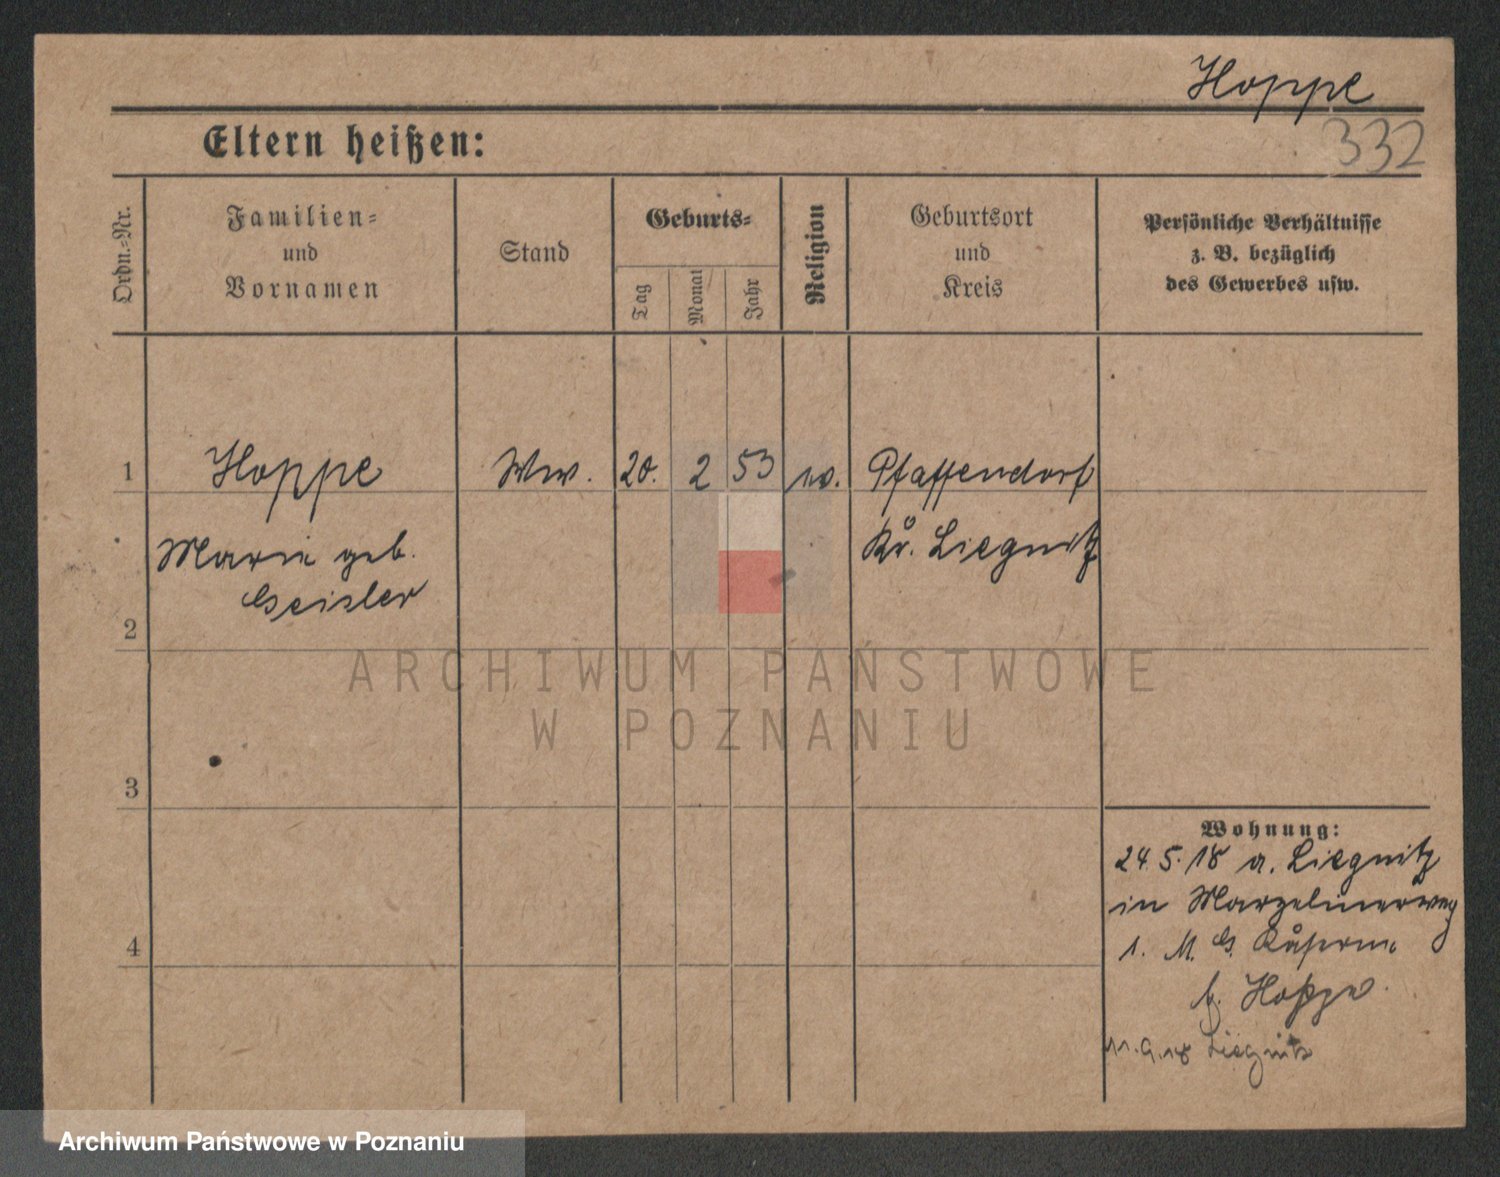 Hoppe
332
Eltern heißen:
Ordn.-Nr.
Familien-
und
Vornamen
Stand
Geburts-
Tag
Monat
Jahr
Religion
Geburtsort
und
Kreis
Persönliche Verhältnisse
z. B. bezüglich
des Gewerbes usw.
1 Hoppe Ww. 20. 2 53 ev. Pfaffendorf
Marie geb. Kr. Liegnitz
Geisler
2
ARCHIWUM PAŃSTWOWE
W POZNANIU
3
4
Wohnung:
24.5.18 a. Liegnitz
in Marzelinerweg
1. M. G. Kaserne
b. Hoppe.
11.9.18 Liegnitz
Archiwum Państwowe w Poznaniu